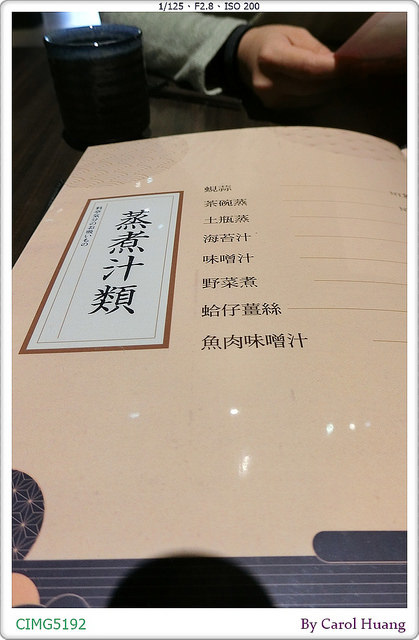 1/125 · F2.8 · ISO 200
蒸煮汁類
蜆蒜
茶碗蒸
土瓶蒸
海苔汁
味噌汁
野菜煮
蛤仔薑絲
魚肉味噌汁
CIMG5192
By Carol Huang